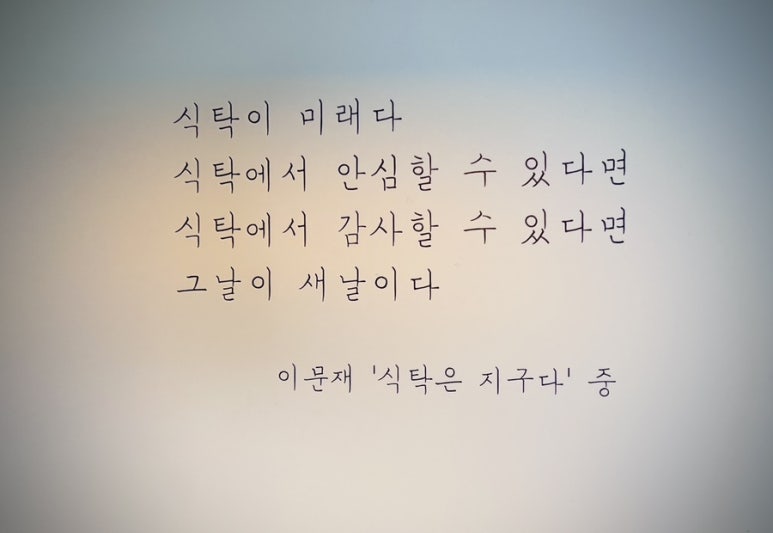 식탁이 미래다
식탁에서 안심할 수 있다면
식탁에서 감사할 수 있다면
그날이 새날이다
이문재 '식탁은 지구다' 중